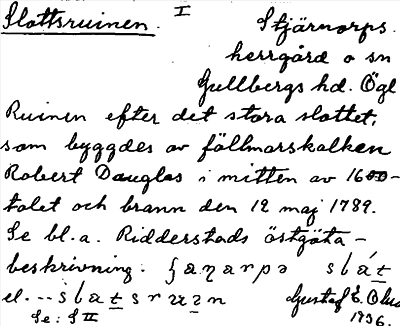 Slottsruinen. I Stjärnorps
herrgård o sn
Gullbergs hd. Ögl
Ruinen efter det stora slottet,
som byggdes av fältmarskalken
Robert Douglas i mitten av 1600-
talet och brann den 12 maj 1789.
Se bl.a. Ridderstads östgöta-
beskrivning.
el.
Gustaf E. 
Se: S II 1936.